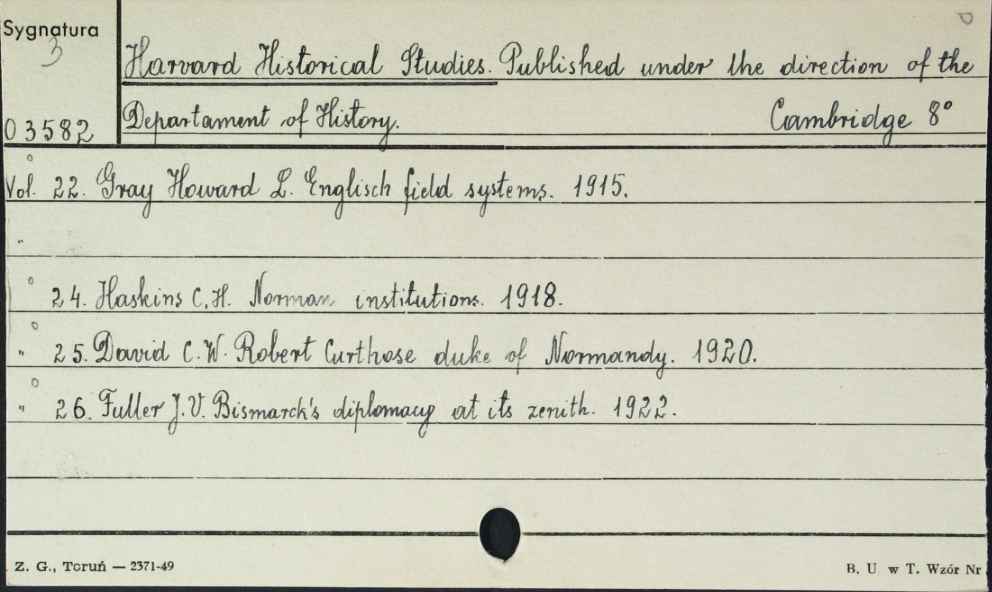 Sygnatura
3
03582
Harvard Historical Studies. Published under the direction of the
Departament of History. Cambridge 8°
Vol. 22. Gray Howard L. Englisch field systems. 1915.
"
24. Haskins C.H. Norman institutions. 1918.
" 25. David C.W. Robert Curthose duke of Normandy. 1920.
" 26. Fuller J.V. Bismarck's diplomacy at its zenith. 1922.
Z. G., Toruń — 2371-49
B. U w T. Wzór Nr